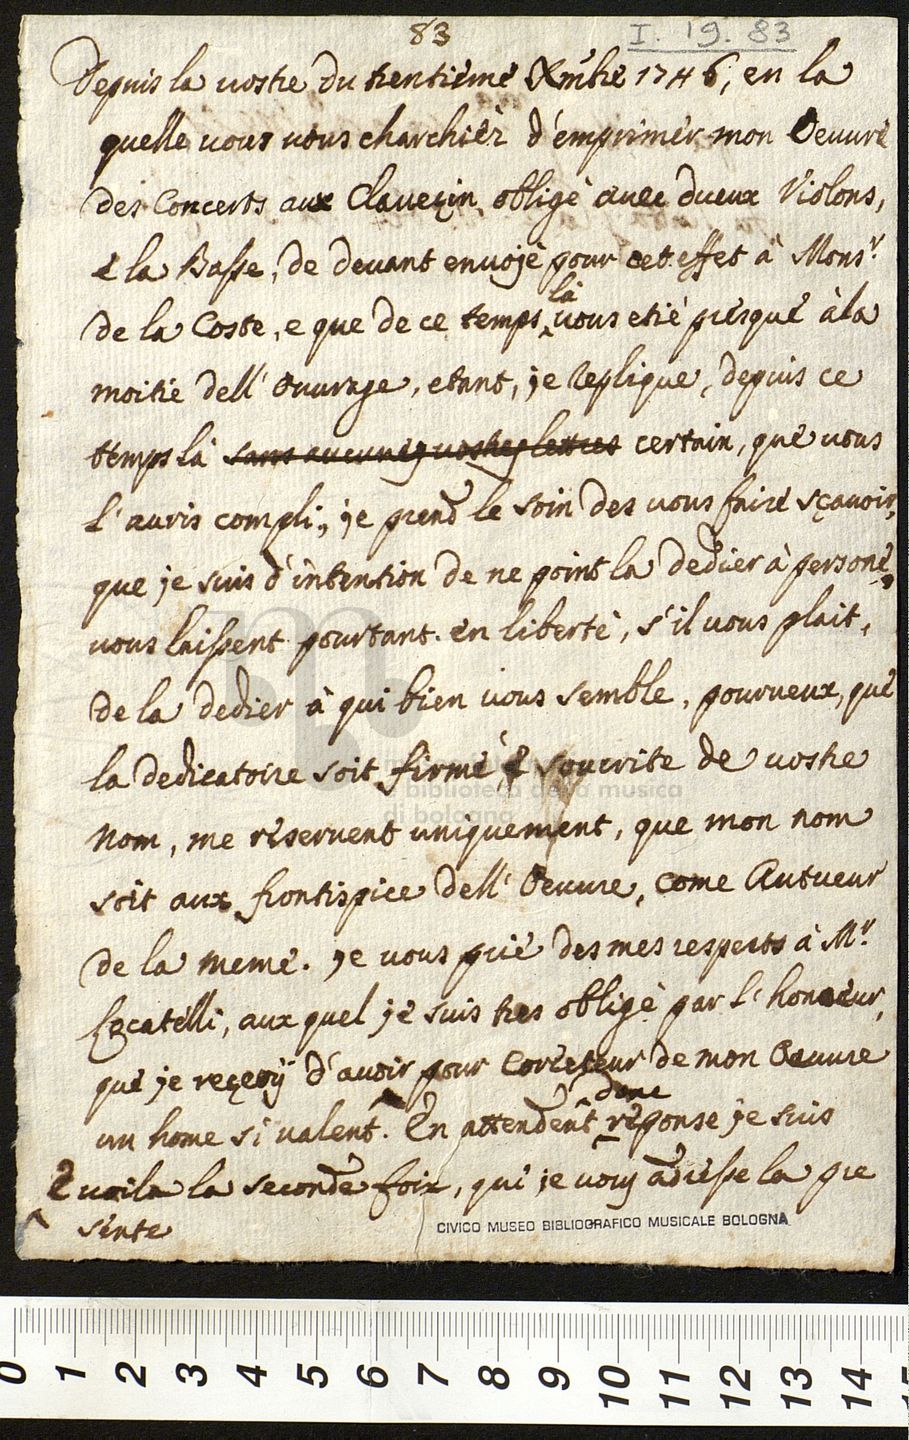 83
I. 19. 83
Depuis la vostre du trentieme Xmbre 1746, en la
quelle vous vous charchiéz d'emprimer mon Oeuvre
des Concerts aux Clavecin obligé avec dueux Violons,
e la Basse, de devant envojé pour cet effet à Monsr
de la Coste, e que de ce temps là vous etié presque à la
moitié dell' Ouvrage, etant, je replique, depuis ce
temps là sans aucunes vostres lettres certain, que vous
l'auris compli, je prend le soin des vous faire sçavoir,
que je suis d'intention de ne point la dedier à persone,
vous laissent pourtant en liberté, s'il vous plait,
de la dedier à qui bien vous semble, pourveux, que
la dedicatoire soit firmé e soucrite de vostre
Nom, me reservent uniquement, que mon nom
soit aux frontispice dell' Oeuvre, come Autueur
de la meme. Je vous prie des mes respects à Mr
Locatelli, aux quel je suis tres obligé par l'honneur,
que je reçeoij d'avoir pour Correteur de mon Oeuvre
un home si valent. En attendent donc réponse je suis
e voila la seconde foix, que je vous adresse la pre
sente
museo internazionale
e biblioteca della musica
di bologna
CIVICO MUSEO BIBLIOGRAFICO MUSICALE BOLOGNA
0 1 2 3 4 5 6 7 8 9 10 11 12 13 14